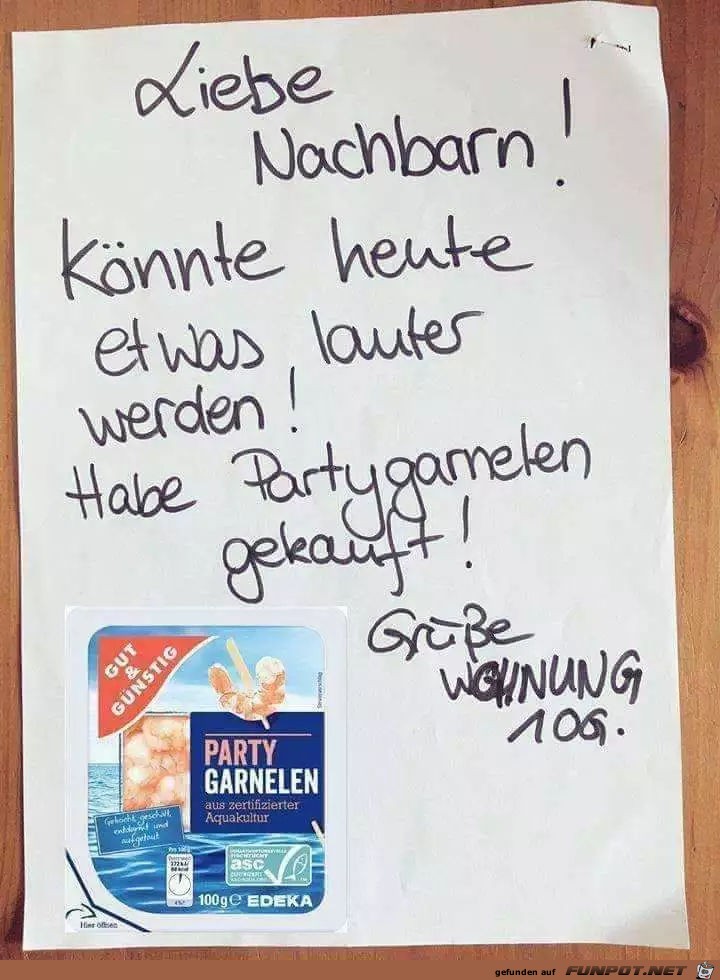 Liebe
Nachbarn!
Könnte heute
etwas lauter
werden!
Habe Partygarnelen
gekauft!
Grüße
WOHNUNG
10G.
GUT
&
GÜNSTIG
Serviervorschlag
PARTY
GARNELEN
aus zertifizierter
Aquakultur
Gekocht, geschält,
entdarmt und
aufgetaut
Pro 100g
372 kJ/
88 kcal
4%*
asc
ZERTIFIZIERT
100g e EDEKA
Hier öffnen
gefunden auf FUNPOT.NET